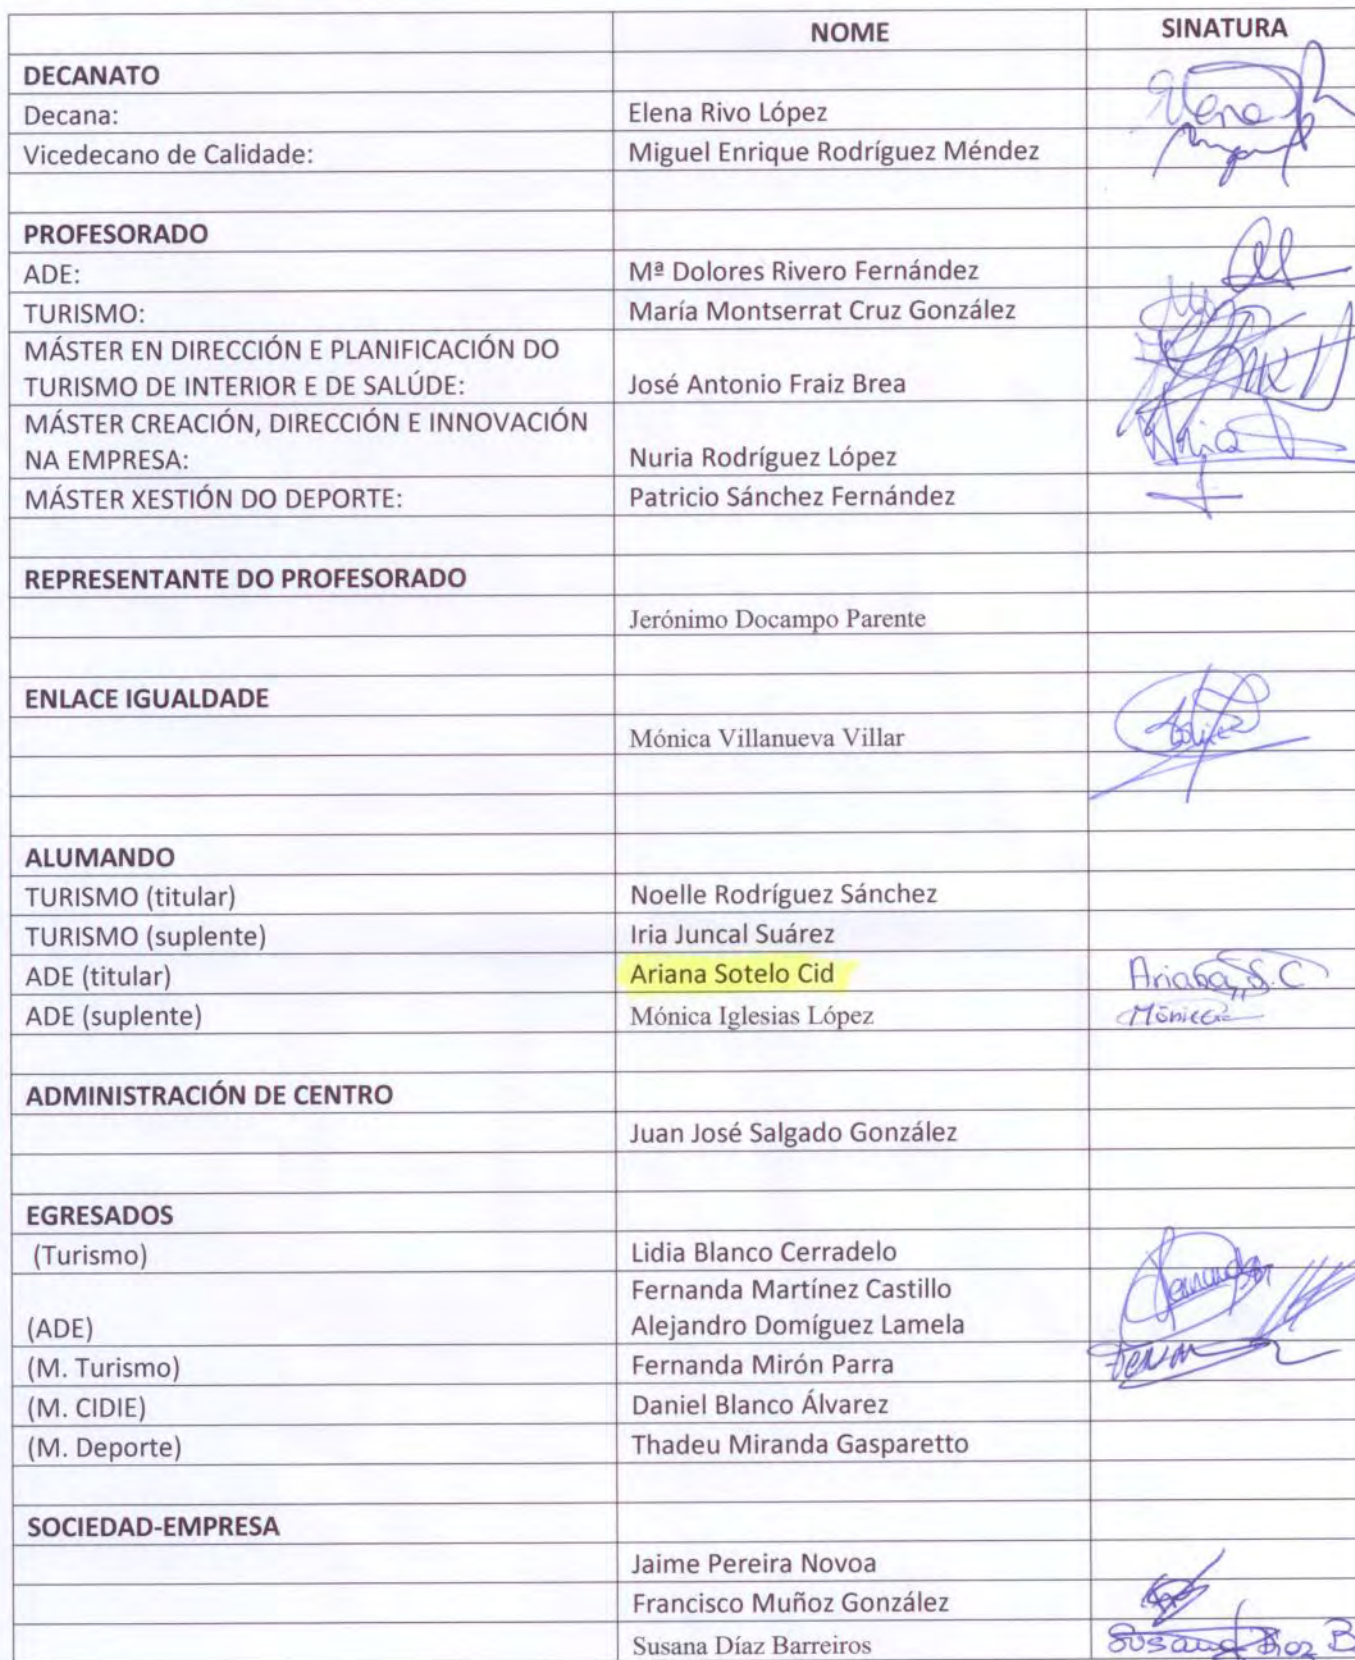 NOME SINATURA
DECANATO
Decana: Elena Rivo López Elena
Vicedecano de Calidade: Miguel Enrique Rodríguez Méndez
PROFESORADO
ADE: Mª Dolores Rivero Fernández
TURISMO: María Montserrat Cruz González
MÁSTER EN DIRECCIÓN E PLANIFICACIÓN DO
TURISMO DE INTERIOR E DE SALÚDE: José Antonio Fraiz Brea
MÁSTER CREACIÓN, DIRECCIÓN E INNOVACIÓN
NA EMPRESA: Nuria Rodríguez López
MÁSTER XESTIÓN DO DEPORTE: Patricio Sánchez Fernández
REPRESENTANTE DO PROFESORADO
Jerónimo Docampo Parente
ENLACE IGUALDADE
Mónica Villanueva Villar
ALUMANDO
TURISMO (titular) Noelle Rodríguez Sánchez
TURISMO (suplente) Iria Juncal Suárez
ADE (titular) Ariana Sotelo Cid Ariana S.C
ADE (suplente) Mónica Iglesias López Mónica
ADMINISTRACIÓN DE CENTRO
Juan José Salgado González
EGRESADOS
(Turismo) Lidia Blanco Cerradelo
Fernanda Martínez Castillo
(ADE) Alejandro Domíguez Lamela
(M. Turismo) Fernanda Mirón Parra
(M. CIDIE) Daniel Blanco Álvarez
(M. Deporte) Thadeu Miranda Gasparetto
SOCIEDAD-EMPRESA
Jaime Pereira Novoa
Francisco Muñoz González
Susana Díaz Barreiros Susana Díaz B